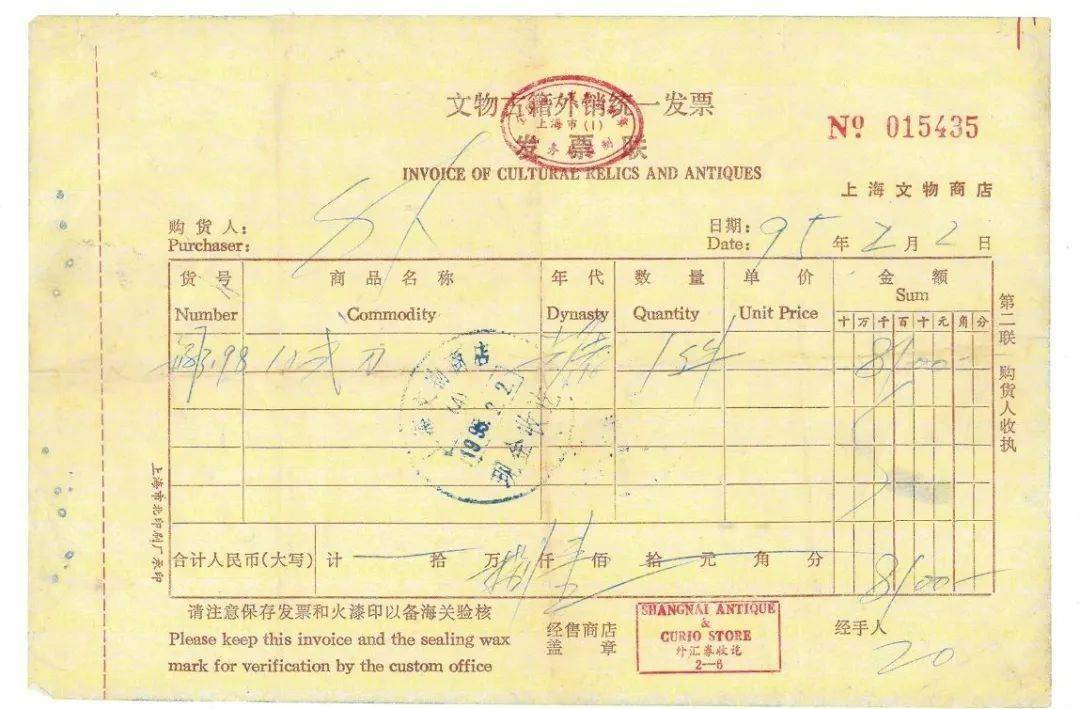 文物古籍外销统一发票
上海市(1)
发票联
INVOICE OF CULTURAL RELICS AND ANTIQUES
№ 015435
上海文物商店
购货人:
Purchaser:
日期: 95年2月2日
Date:
货号 商品名称 年代 数量 单价 金额
Number Commodity Dynasty Quantity Unit Price Sum
十万千百十元角分
1件 8100-
1995.2.2
现金收讫
第二联 购货人收执
上海市北印刷厂承印
合计人民币(大写) 计 拾 万 捌仟壹佰 拾 元 角 分 8100-
请注意保存发票和火漆印以备海关验核
Please keep this invoice and the sealing wax
mark for verification by the custom office
经售商店
盖章
SHANGNAI ANTIQUE
&
CURIO STORE
外汇券收讫
2—6
经手人
20